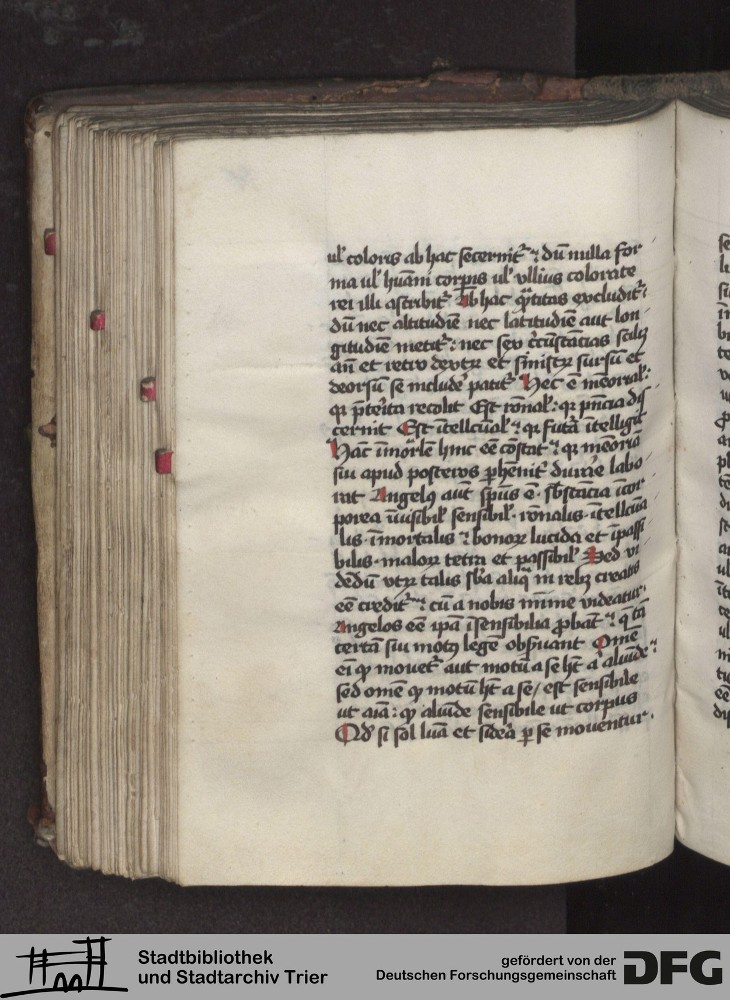 ul̄ coloris ab hac secernit᷑ ⁊ dū nulla for
ma ul̄ huāni corꝑis ul̄ ullius colorate
rei illi ascribit᷑ Ab hac q̄titas excludit᷑
dū nec altitudīe nec latitudīe aut lon
gitudīe metit᷑: nec sex c̄cūstācias scilꝫ
an̄ et retro dextꝝ et sinistꝝ sursū et
deorsū se include᷑ patit᷑ Hec ē mēorial̄:
qꝛ p̄terita recolit Est rōnal̄: qꝛ p̄ncia dis
cernit Est ītellcūal̄ ⁊ qꝛ futā ītelligit
Hāc īmor̄lē hinc eē cōstat ⁊ qꝛ mēoriā
sui apud posteros ꝑhēnit᷑ durare labo
rat Angelꝯ aut̄ sp̄us ē. sb̄stācia īcor
porea īuisibil̄ sensibil̄. rōnalis. ītellcūa
lis. īmortalis ⁊ bonoꝝ lucida et īpassi
bilis. maloꝝ tetra et passibil̄ Sed vi
dēdū utꝝ talis sb̄a aliq̄ in rebꝫ creatis
eē credit᷑ ⁊ cū a nobis mīme videatur.
Angelos eē ip̄ā īsensibilia ꝓbāt ⁊ q̄ tā
certā sui motꝯ legē obẜuant Om̄e
ei̅ ꝙ mouet᷑ aut motū a se ht̄ a aliūde ⁊
sed omē ꝙ motū ht̄ a se / est sensibile
ut aīa: ꝙ aliūde sensibile ut corpus
Qd̕ si sol luā et sidera ꝑ se mouentur.
Stadtbibliothek
und Stadtarchiv Trier
gefördert von der
Deutschen Forschungsgemeinschaft
DFG